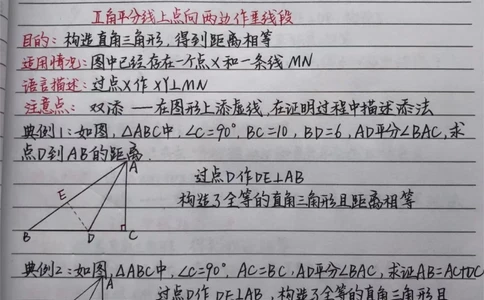 角平分线上点向两边作垂线段
目的：构造直角三角形，得到距离相等
适用情况：图中已经存在一个点X和一条线MN
语言描述：过点X作XY⊥MN
注意点：双添——在图形上添虚线，在证明过程中描述添法
典例1：如图，△ABC中，∠C=90°，BC=10，BD=6，AD平分∠BAC，求
点D到AB的距离．
A
过点D作DE⊥AB
E
构造了全等的直角三角形且距离相等
B D C
典例2：如图，△ABC中，∠C=90°，AC=BC，AD平分∠BAC，求证AB=AC+DC
A
过点D作DE⊥AB，构造了全等的直角三角形且